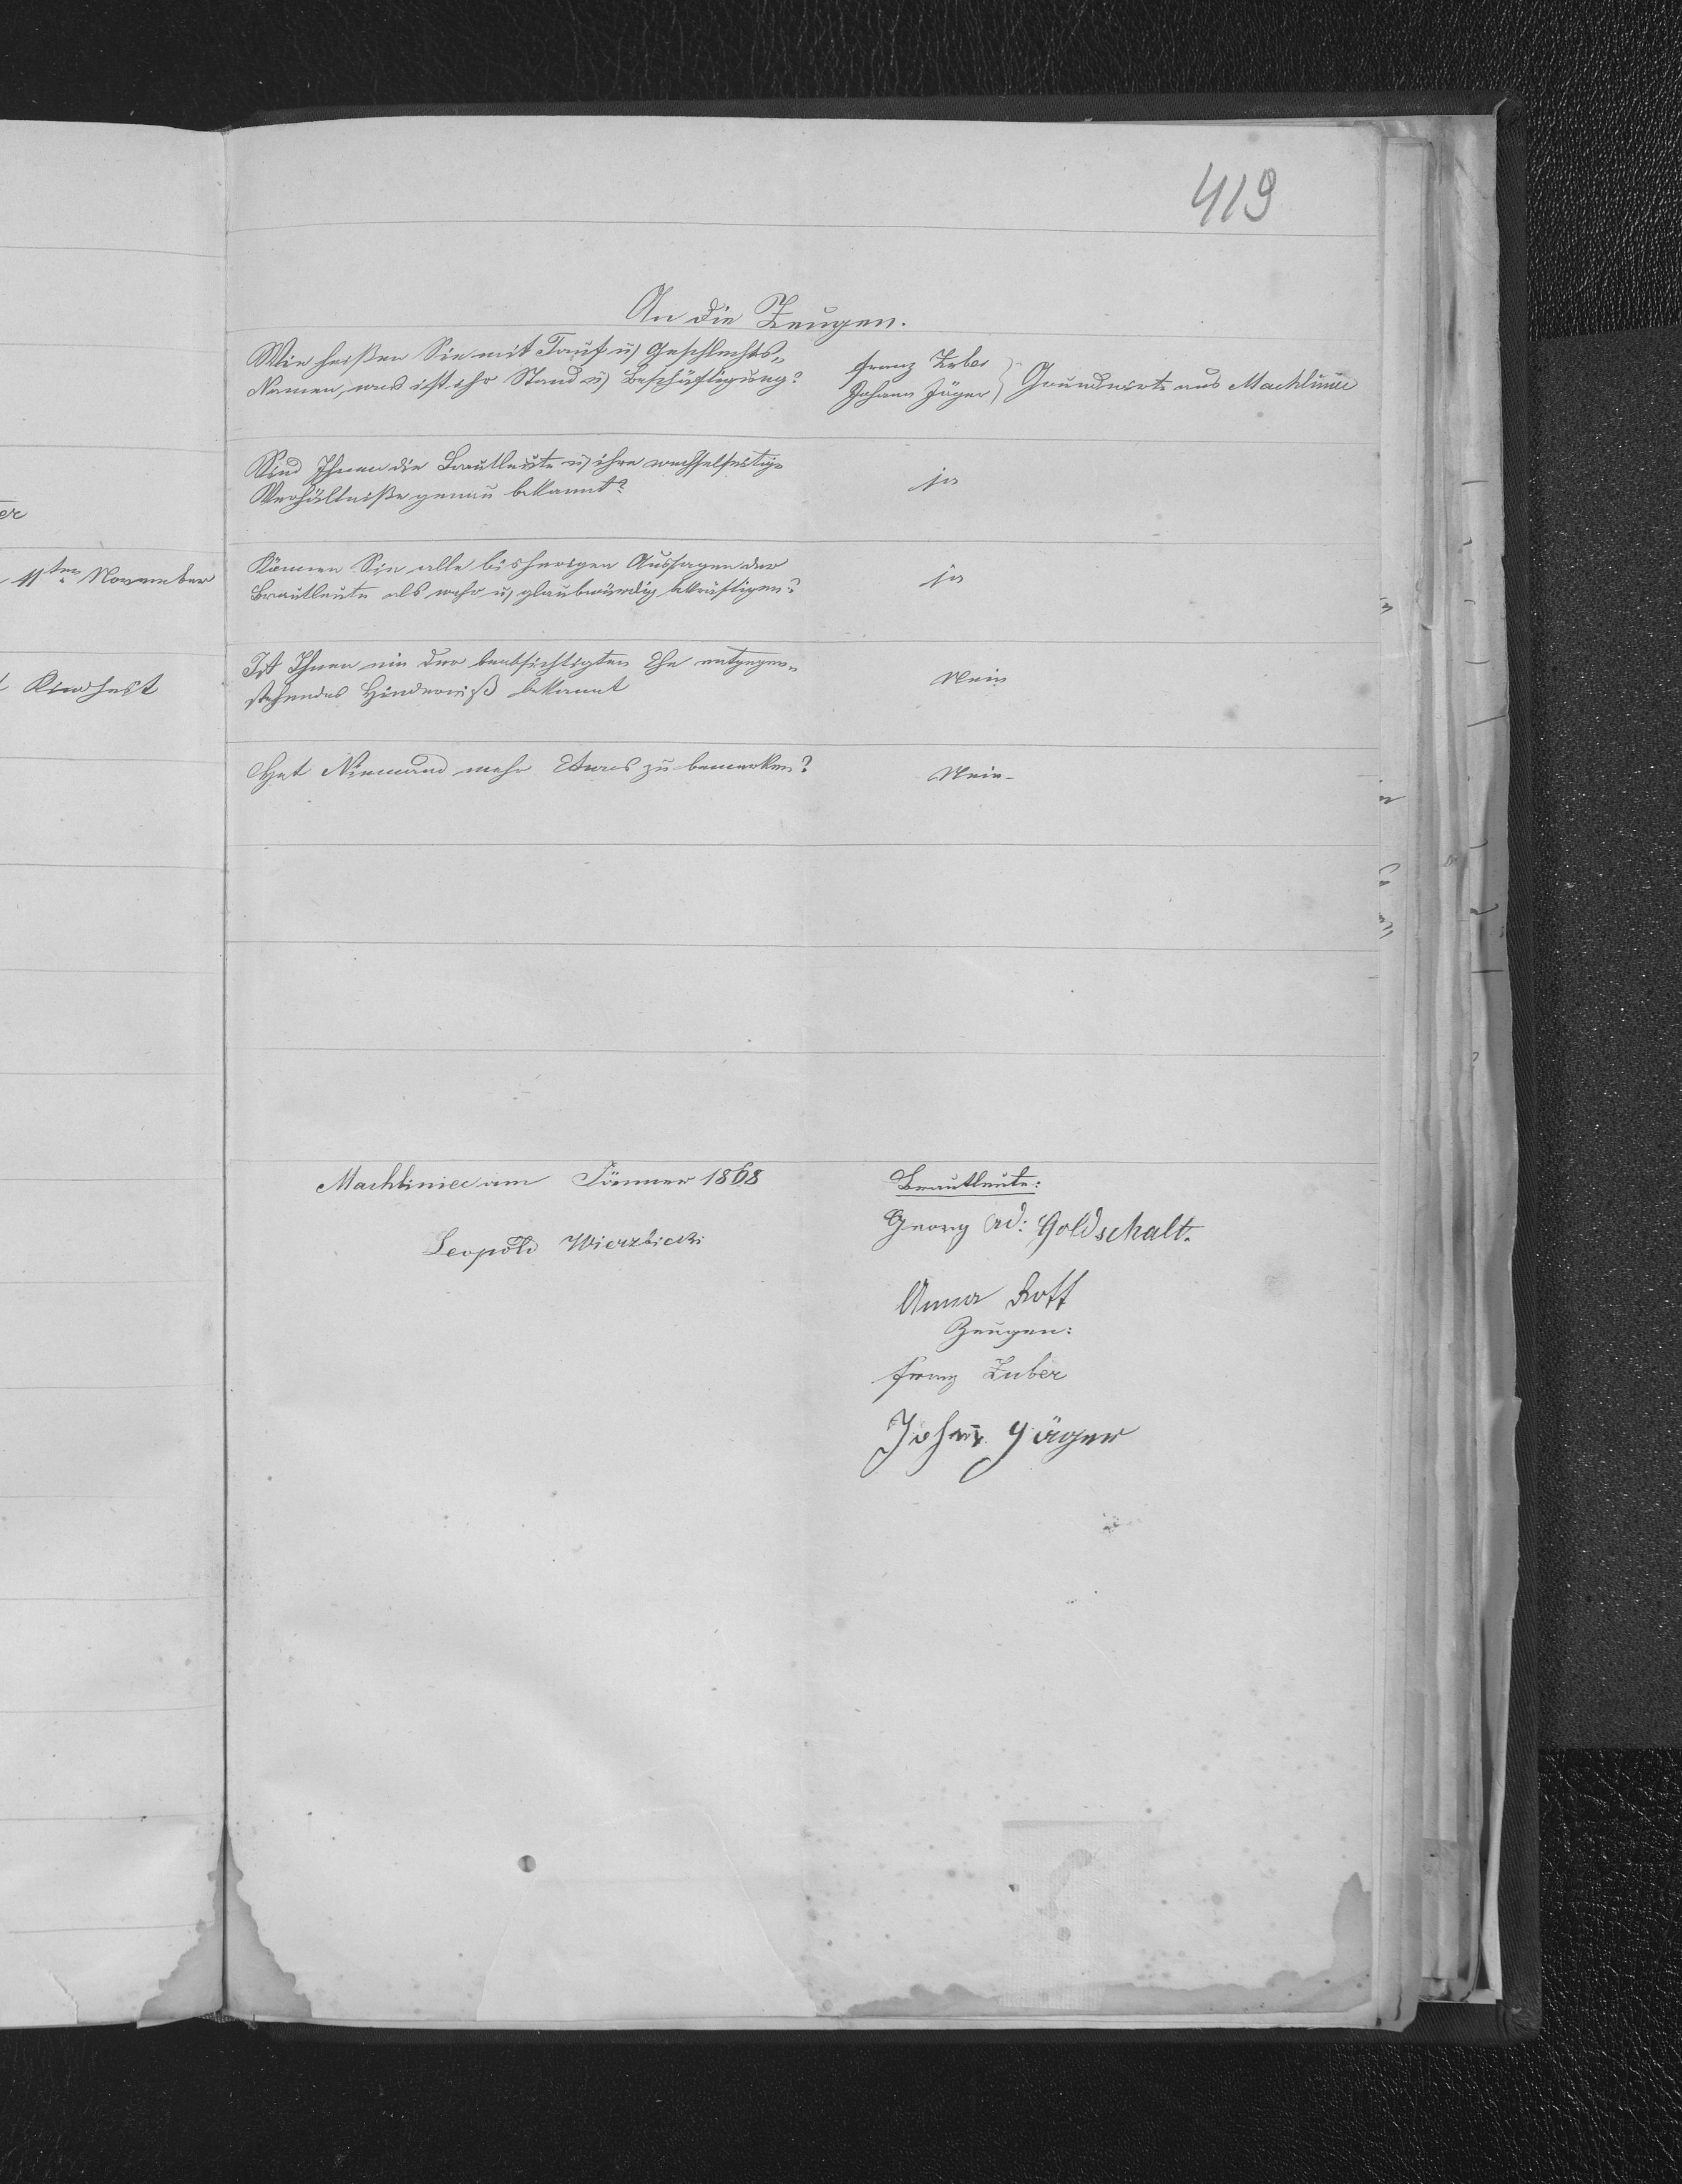 419
An die Zeugen.
Wie heißen Sie mit Tauf u) Geschlechts-
Namen, was ist ihr Stand u) Beschäftigung?
Franz Zuber
Johann Jäger
Grundwirte aus Machliniec
Sind Ihnen die Brautleute u) ihre wechselseitige
Verhältniße genau bekannt?
ja
Können Sie alle bisherigen Aussagen der
Brautleute als wahr u) glaubwürdig bekräftigen?
ja
Ist Ihnen ein der beabsichtigten Ehe entgegen-
stehendes Hinderniß bekannt
Nein
Hat Niemand mehr Etwas zu bemerken?
Nein
er
11ten November
Kindheit
Machliniec am Jänner 1868
Leopold Wierzbicki
Brautleute:
Georg Ad: Goldschalt.
Anna Rott
Zeugen:
Franz Zuber
Johann Jäger